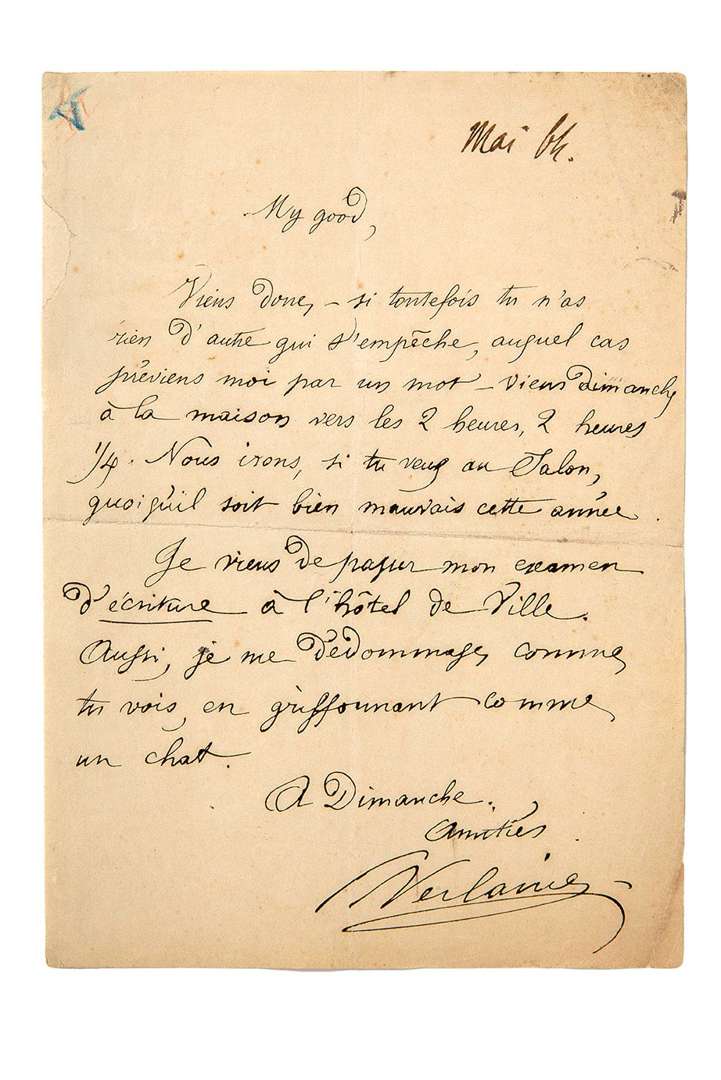 Mai 64.
My good,
Viens donc, – si toutefois tu n'as
rien d'autre qui t'empêche, auquel cas
préviens moi par un mot – viens dimanche
à la maison vers les 2 heures, 2 heures
1/4. Nous irons, si tu veux au Salon,
quoiqu'il soit bien mauvais cette année.
Je viens de passer mon examen
d'écriture à l'hôtel de Ville.
Aussi, je me dédommage, comme
tu vois, en griffonnant comme
un chat.
A Dimanche.
Amitiés.
Verlaine